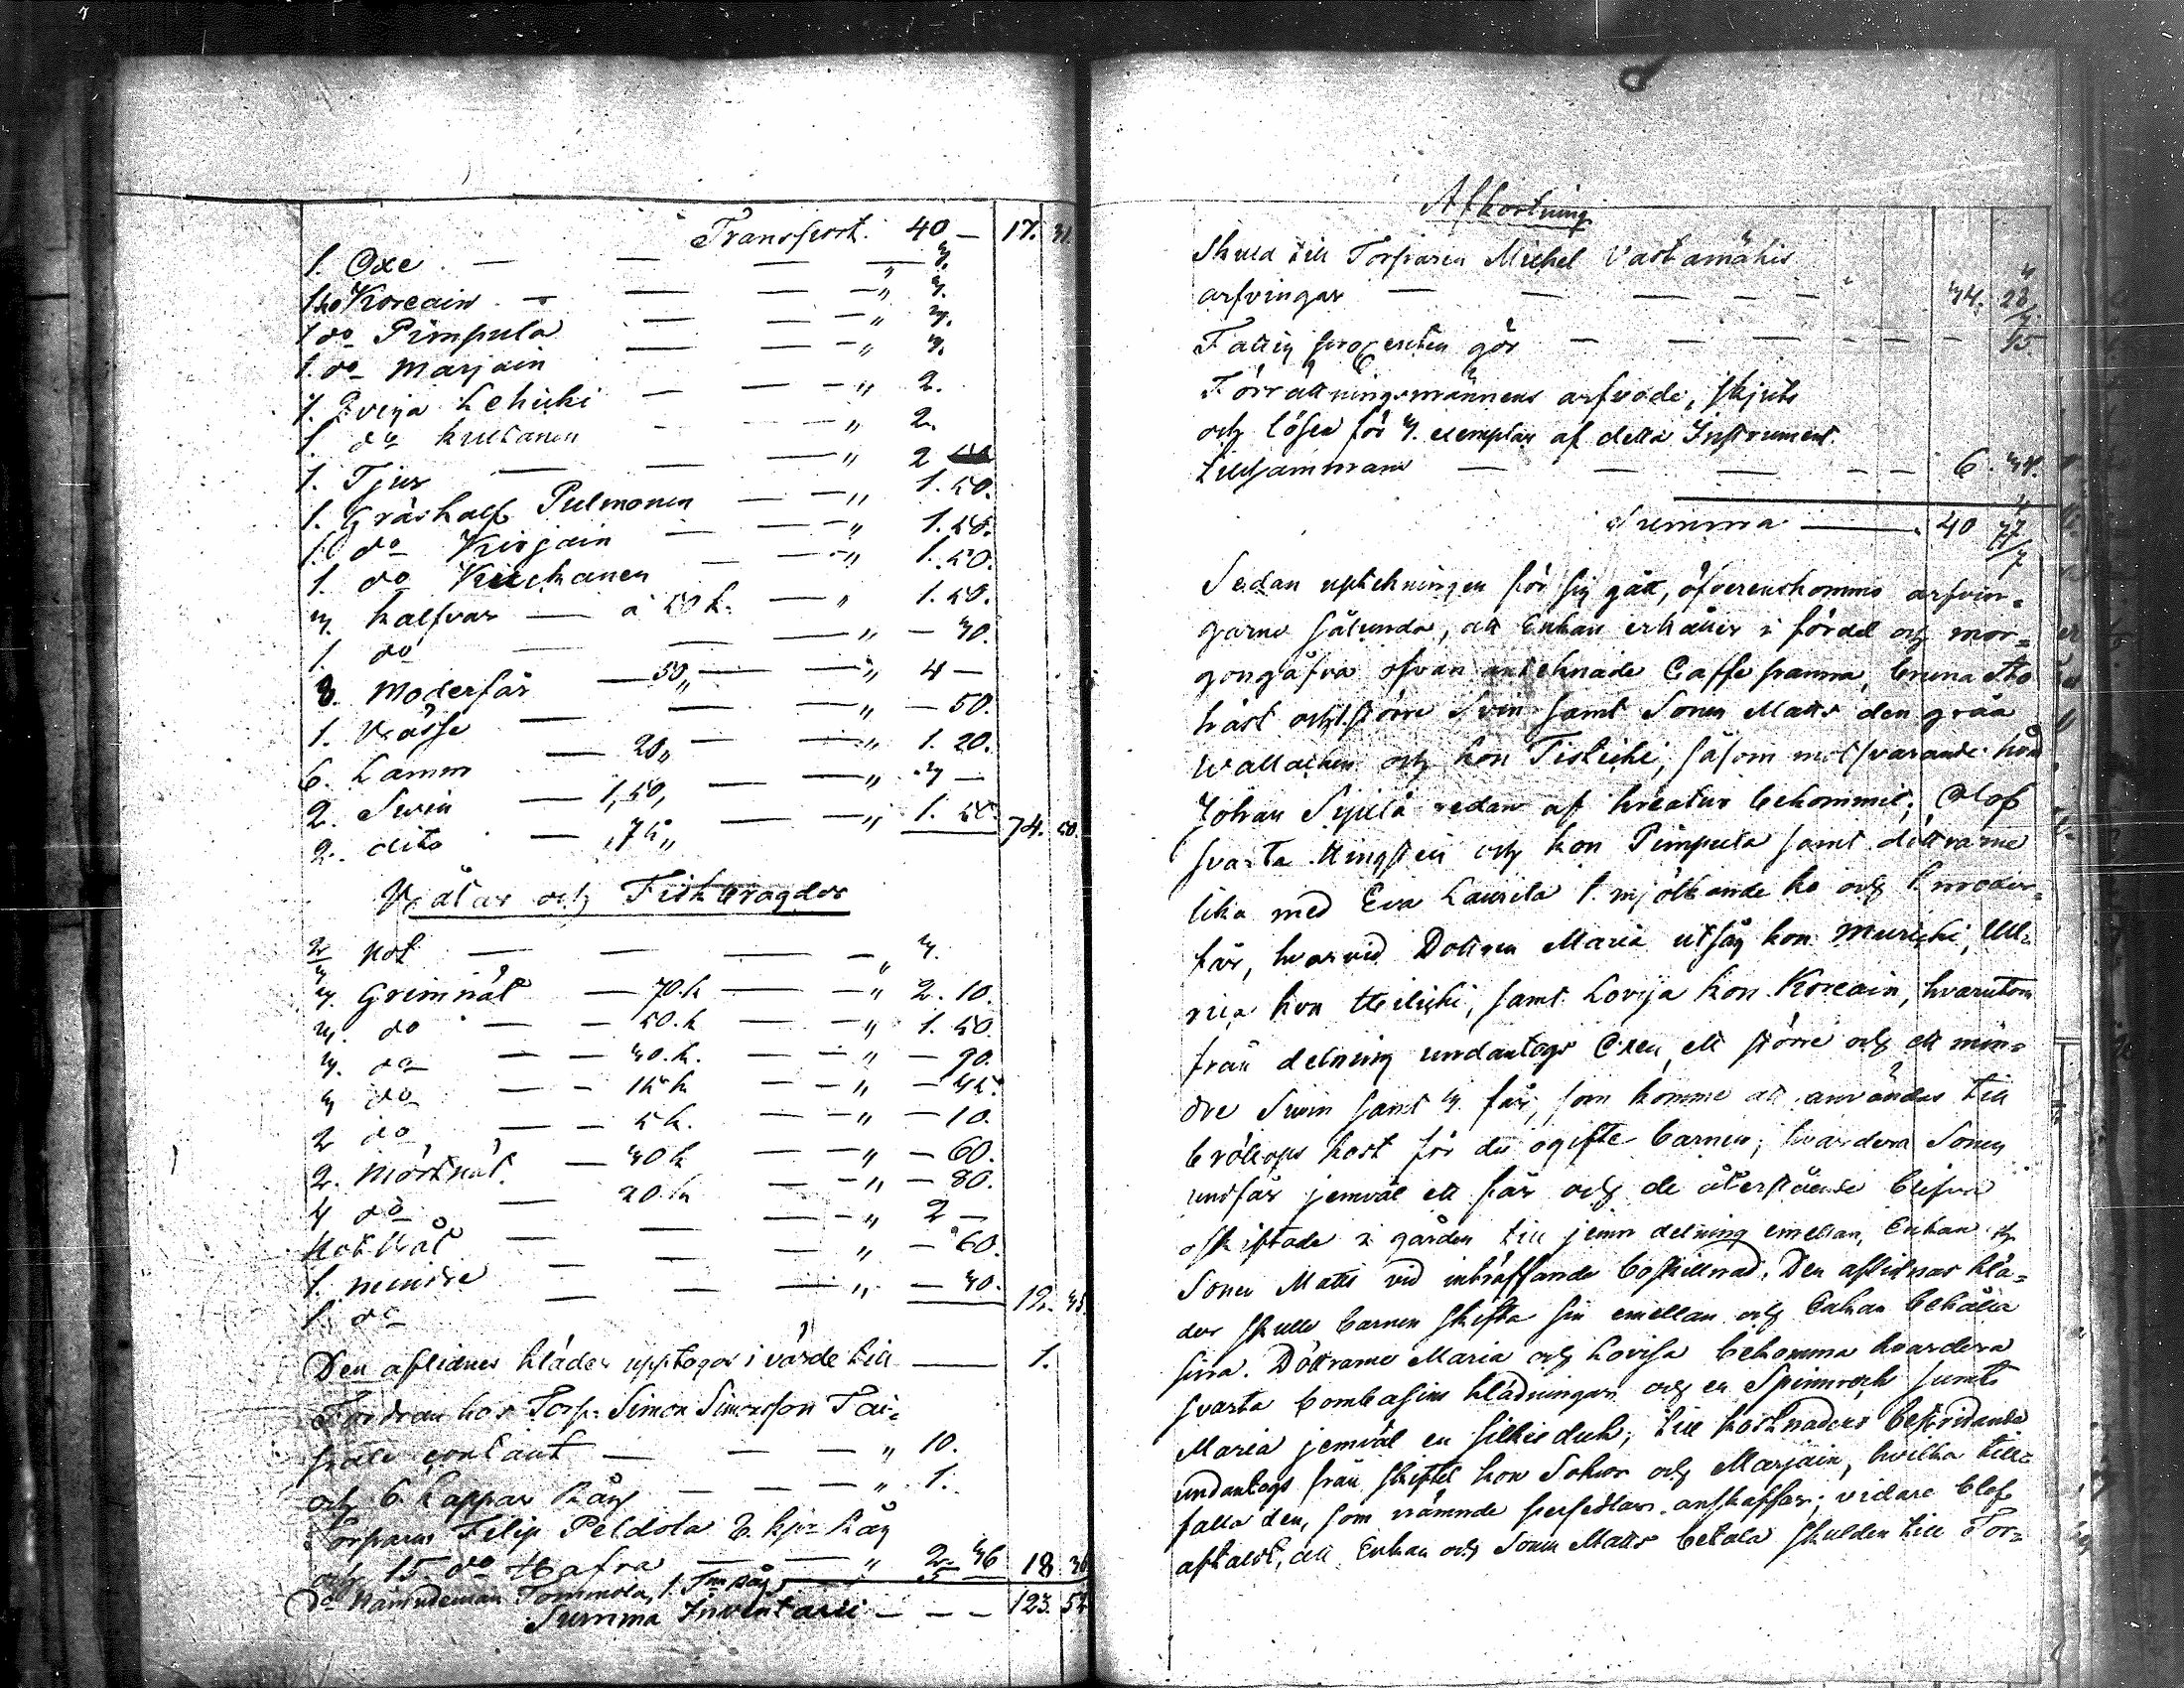 Transport. 40 — 17.
1. Oxe — — — — "
1 ko Koreain — — — — "
1 do Pimpula — — — "
1. do Marjain — — — "
1. Qviga Lehicki — — — " 2.
1. do — — " 2.
1. Tjur — — — " 2
1. Gräskalf Pulmonen — — " 1. 50.
1. do Kirjain — — — " 1. 50.
1. do — — — " 1. 50.
3. kalfvar — à 50 k. — " 1. 50.
1. do — — — " — 30.
8. Moderfår — 50 " — — " 4 —
1. Vässe — — — " — 50.
6. Lamm — 20 " — — " 1. 20.
2. Svin — 1,50, — — " 3 —
2. dito — 75 " — — " 1. 50. 74. 50.
Nätar och Fiskbragder
Not — — — — " 3.
3. Grimnät — 70. k — — " 2. 10.
3. do — — 50. k — — " 1. 50.
3. do — — 30. k. — — " — 90.
3 do — — 15 k — — " — 45.
2 do — — 5 k. — — " — 10.
2. Mörtnät. — 30 k — — " — 60.
4 do — 20. k — — " — 80.
— — — " 2 —
1. mindre — — — " — 60.
1. do — — — " — 30. 12. 35.
Den aflidnes kläder upptogos i värde till — 1.
Fordran hos Torp. Simon Simonsson Tai-
pale contant — — — " 10.
och 6. Kappar Råg — — — " 1.
Torparen Filip Peldola 6. kpr Råg
och 15 do Hafra — — " 2 36 18
do Nämndeman Tommola, 1. Tna råg
Summa Inventarii — — — 123. 52
Afkortning
Skuld till Torparen Michel Vastamäkis
arfvingar — — — — — 34. 28
Fattig procenten gör — — — — — — 15
Förrättningsmännens arfvode, skjuts
och lösen för 3. exemplar af detta Instrument
tillsammans — — — — — 6. 34.
Summa — 40 77
Sedan uptekningen för sig gått, öfverenskommo arfvin-
garne sålunda, att Enkan erhåller i fördel och mor-
gongåfva ofvan antecknade Caffe panna, bruna Sto
häst och 1. större Svin samt Sonen Matts den gråa
Wallachen och kon Tistichi, såsom motsvarande hvad
Johan Sipilä redan af kreatur bekommit; Olof
svarta Hingsten och kon Pimpula samt döttrarne
lika med Eva Laurila 1. mjölkande ko och 1 moder-
får, hvarvid Dottren Maria utsåg kon Murichi, Ul-
rica kon Heilichi, samt Lovisa kon Koreain, hvarutom
från delning undantogs Oxen, ett större och ett min-
dre Svin samt 3. får, som komme att användas till
bröllops kost för de ogifte barnen; hvardera Sonen
undfår jemväl ett får och de återstående blifva
oskiftade i gården till jemn delning emellan, Enkan och
Sonen Matts vid inträffande boskillnad. Den aflidnas klä-
der skulle barnen skifta sin emellan och Enkan behålla
sina. Döttrarne Maria och Lovisa bekomma hvardera
svarta bombasins klädningar och en Spinnrock samt
Maria jemväl en silkesduk; till kostnadens bestridande
undantogs från skiftet kon Sokur och Marjain, hvilka till-
falla den, som nämnde persedlar anskaffar; vidare blef
aftaldt, att Enkan och Sonen Matts betala skulden till Tor-